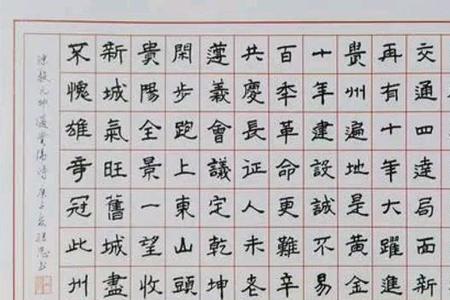 交通四達局面新
再有十年大躍進
貴州遍地是黃金
十年建設誠不易
百秊革命更難辛
共慶長征人未老
遵義會議定乾坤
閑步跑上東山頭
貴陽全景一望收
新城氣旺舊城盡
不愧雄奇冠此州
陳毅元帥遊貴陽詩庚子夏